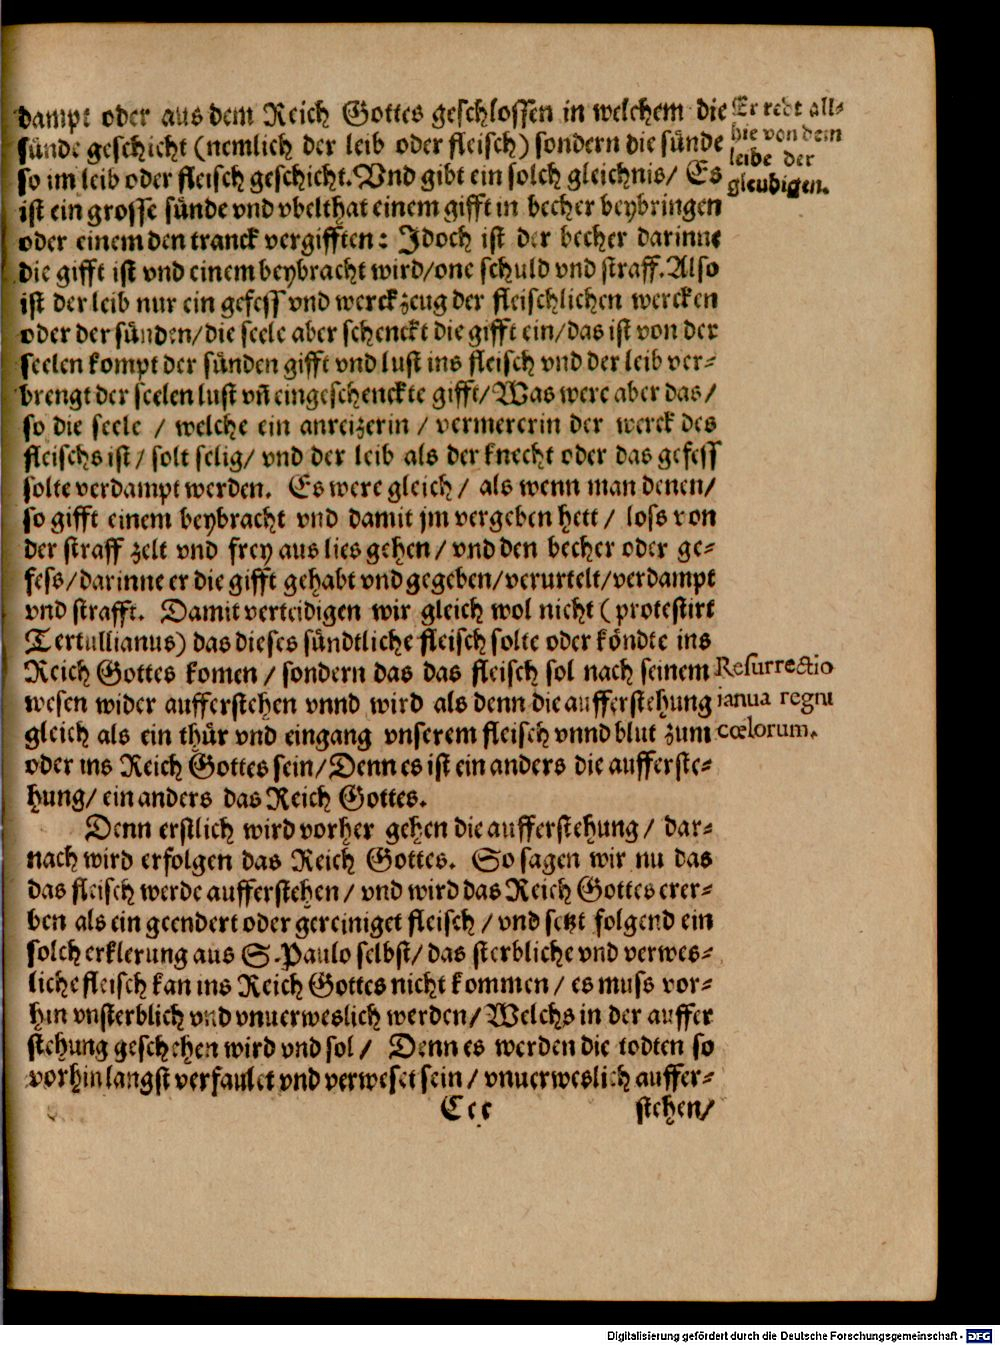 dampt oder aus dem Reich Gottes geschlossen in welchem die
sünde geschicht (nemlich der leib oder fleisch) sondern die sünde
so im leib oder fleisch geschicht. Vnd gibt ein solch gleichnis/ Es
ist ein grosse sünde vnd vbelthat einem gifft in becher beybringen
oder einem den tranck vergifften: Jdoch ist der becher darinne
die gifft ist vnd einem beybracht wird/one schuld vnd straff. Also
ist der leib nur ein gefess vnd werckzeug der fleischlichen wercken
oder der sünden/die seele aber schenckt die gifft ein/das ist von der
seelen kompt der sünden gifft vnd lust ins fleisch vnd der leib ver-
brengt der seelen lust vñ eingeschenckte gifft/Was were aber das/
so die seele / welche ein anreizerin / vermererin der werck des
fleischs ist/ solt selig/ vnd der leib als der knecht oder das gefess
solte verdampt werden. Es were gleich / als wenn man denen/
so gifft einem beybracht vnd damit jm vergeben hett / loss von
der straff zelt vnd frey aus lies gehen / vnd den becher oder ge-
fess/darinne er die gifft gehabt vnd gegeben/verurtelt/verdampt
vnd strafft. Damit verteidigen wir gleich wol nicht ( protestirt
Tertullianus) das dieses sündtliche fleisch solte oder köndte ins
Reich Gottes komen / sondern das das fleisch sol nach seinem
wesen wider aufferstehen vnnd wird als denn die aufferstehung
gleich als ein thür vnd eingang vnserem fleisch vnnd blut zum
oder ins Reich Gottes sein/Denn es ist ein anders die aufferste-
hung/ ein anders das Reich Gottes.
Denn erstlich wird vorher gehen die aufferstehung / dar-
nach wird erfolgen das Reich Gottes. So sagen wir nu das
das fleisch werde aufferstehen / vnd wird das Reich Gottes erer-
ben als ein geendert oder gereiniget fleisch / vnd setzt folgend ein
solch erklerung aus S. Paulo selbst/ das sterbliche vnd verwes-
liche fleisch kan ins Reich Gottes nicht kommen / es muss vor-
hin vnsterblich vnd vnuerweslich werden/ Welchs in der auffer
stehung geschehen wird vnd sol / Denn es werden die todten so
vorhin langst verfaulet vnd verweset sein / vnuerweslich auffer-
Eee stehen/
Er redt all-
hie von dem
leibe der
gleubigen.
Resurrectio
ianua regni
cœlorum.
Digitalisierung gefördert durch die Deutsche Forschungsgemeinschaft - DFG